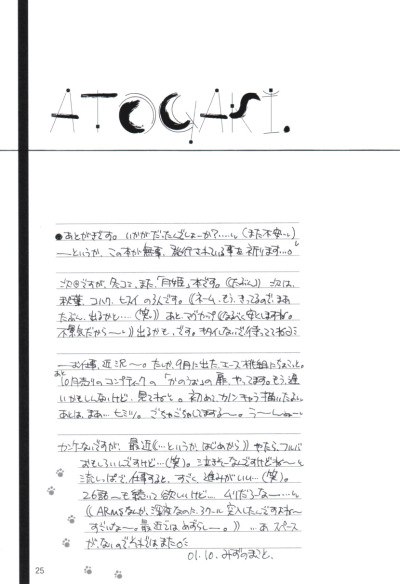 ATOGAKI.
●あとがきです。いかがだったんでしょーか?……(また不安…)
―というか、この本が無事、発行されている事を祈ります…。
次回ですが、冬コミ、また、「月姫」本です。(たぶん) 次は、
秋葉、コハク、ヒスイの3人です。(ネーム、もう、きってるのでまあ
たぶん、出るかと…(笑)) あと
不景気だから〜) 出るかも、です。 待っててねミ
―お仕事、近況〜。たしか、9月に出た、エース桃組にちょこっと。
あと
10月売りのコンプティークの「かのうぉ」の扉、やってます。もう、遅
いかもしんないけど、見てね〜。初めてカノンきゃら描いたよ。
あとは、まあ…ヒミツ。ごちゃごちゃしてまする〜。う〜ん
カンケーないですが、最近(…というか、はじめから) やたら、フルバ
おもしろいんですけど…(笑)。泣きそーなんですけどね〜
流しっぱで、仕事すると、すごく、進みがいい…(笑)。
26話〜も続いて欲しいけど… ムリだろな〜……
(ARMSなんか、深夜なのに、2クール突入したんですよね〜
すごいな〜。最近ではめずらし〜。) …あ スペース
がないので ではまた。ミ
01.10. みずのまこと.
25